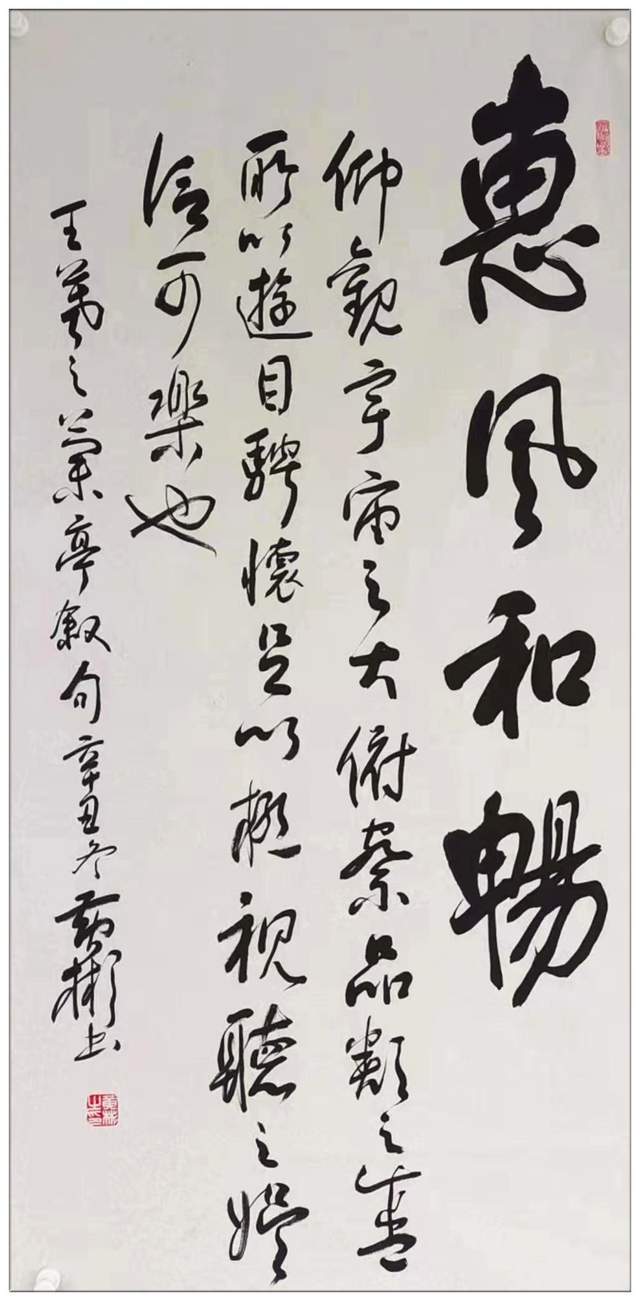 惠風和暢
仰觀宇宙之大俯察品類之盛
所以遊目騁懷足以極視聽之娛
信可樂也
王羲之蘭亭叙句辛丑冬黄彬书